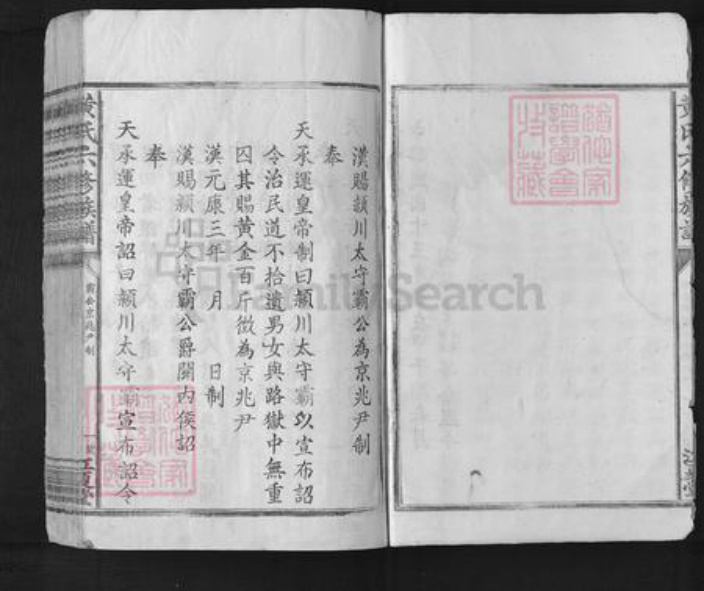 漢賜頴川太守霸公為京兆尹制
奉
天承運皇帝制曰頴川太守霸以宣布詔
令治民道不拾遺男女與路獄中無重
囚其賜黃金百斤徵為京兆尹
漢元康三年 月 日制
漢賜頴川太守霸公爵關內侯詔
奉
天承運皇帝詔曰頴川太守霸宣布詔令
黃氏六修族譜
霸公京兆尹制
江夏堂
黃氏六修族譜
FamilySearch